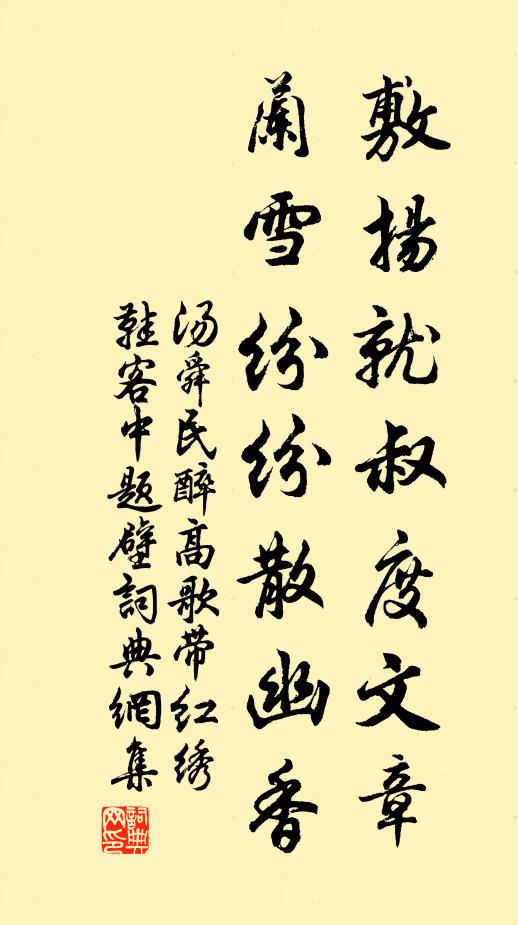 敷揚就叔度文章
蘭雪纷纷散幽香
汤舜民醉高歌带红绣
鞋客中题壁詞典網集
詞典网印